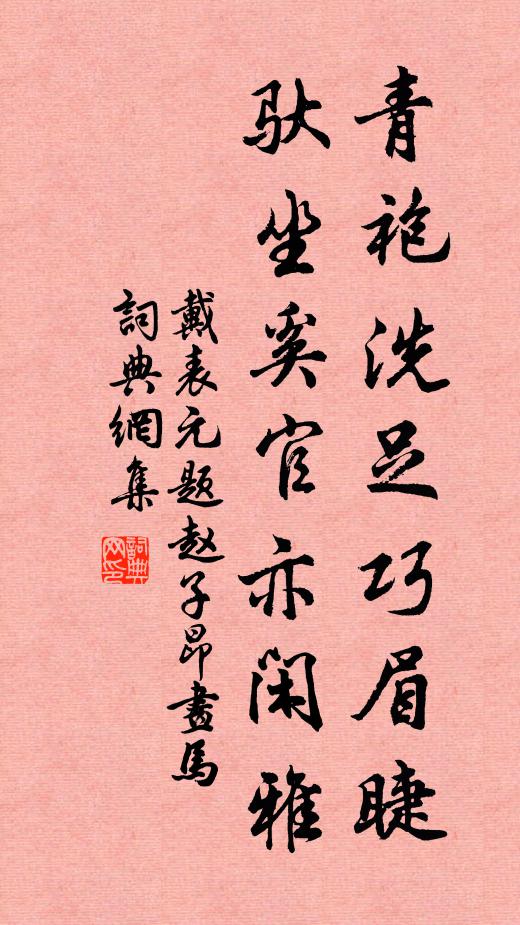 青袍洗足巧眉睫
馱坐奚官亦閑雅
戴表元题赵子昂畫馬
詞典網集
詞典網印